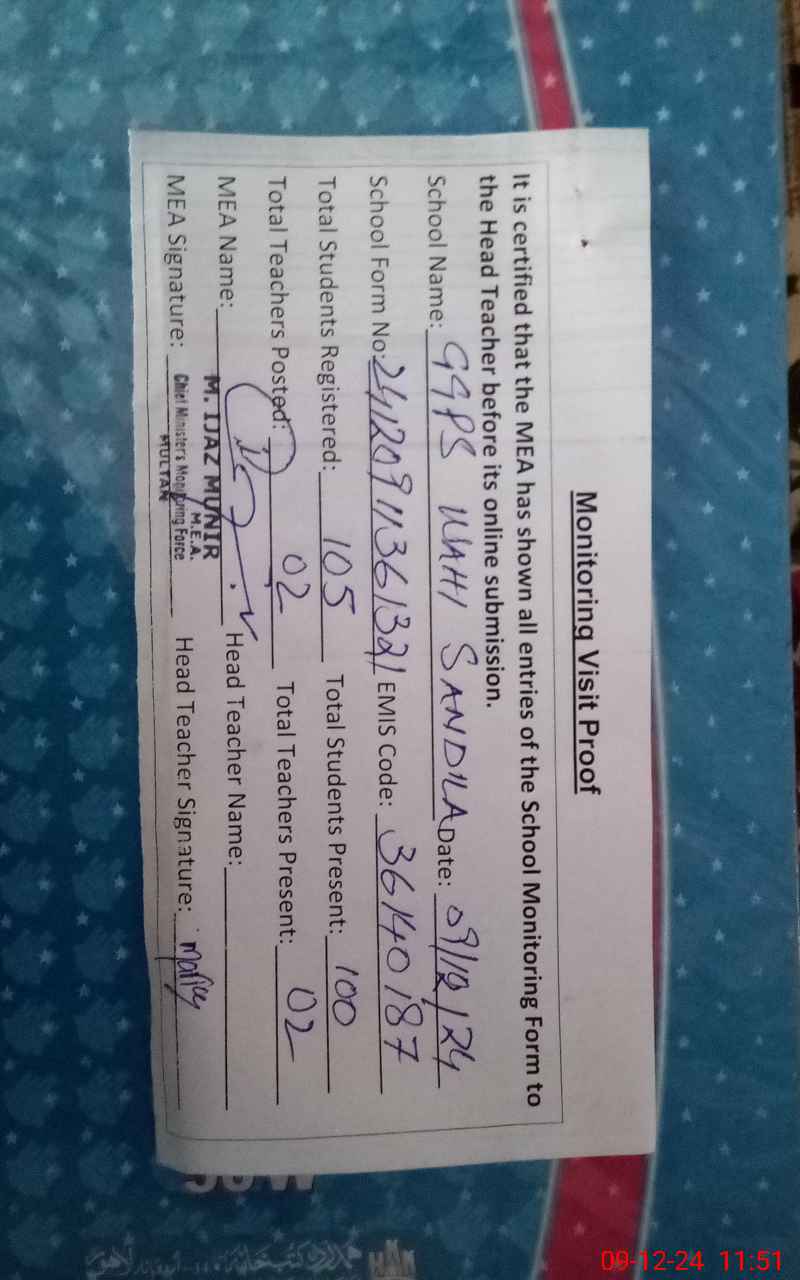 Monitoring Visit Proof
It is certified that the MEA has shown all entries of the School Monitoring Form to
the Head Teacher before its online submission.
School Name: GGPS WAHI SANDILA Date: 09/12/24
School Form No: 24120911361321 EMIS Code: 36140187
Total Students Registered: 105 Total Students Present: 100
Total Teachers Posted: 02 Total Teachers Present: 02
MEA Name: Head Teacher Name:
M. IJAZ MUNIR
M.E.A.
Chief Minister's Monitoring Force
MULTAN
MEA Signature: Head Teacher Signature:
09-12-24 11:51